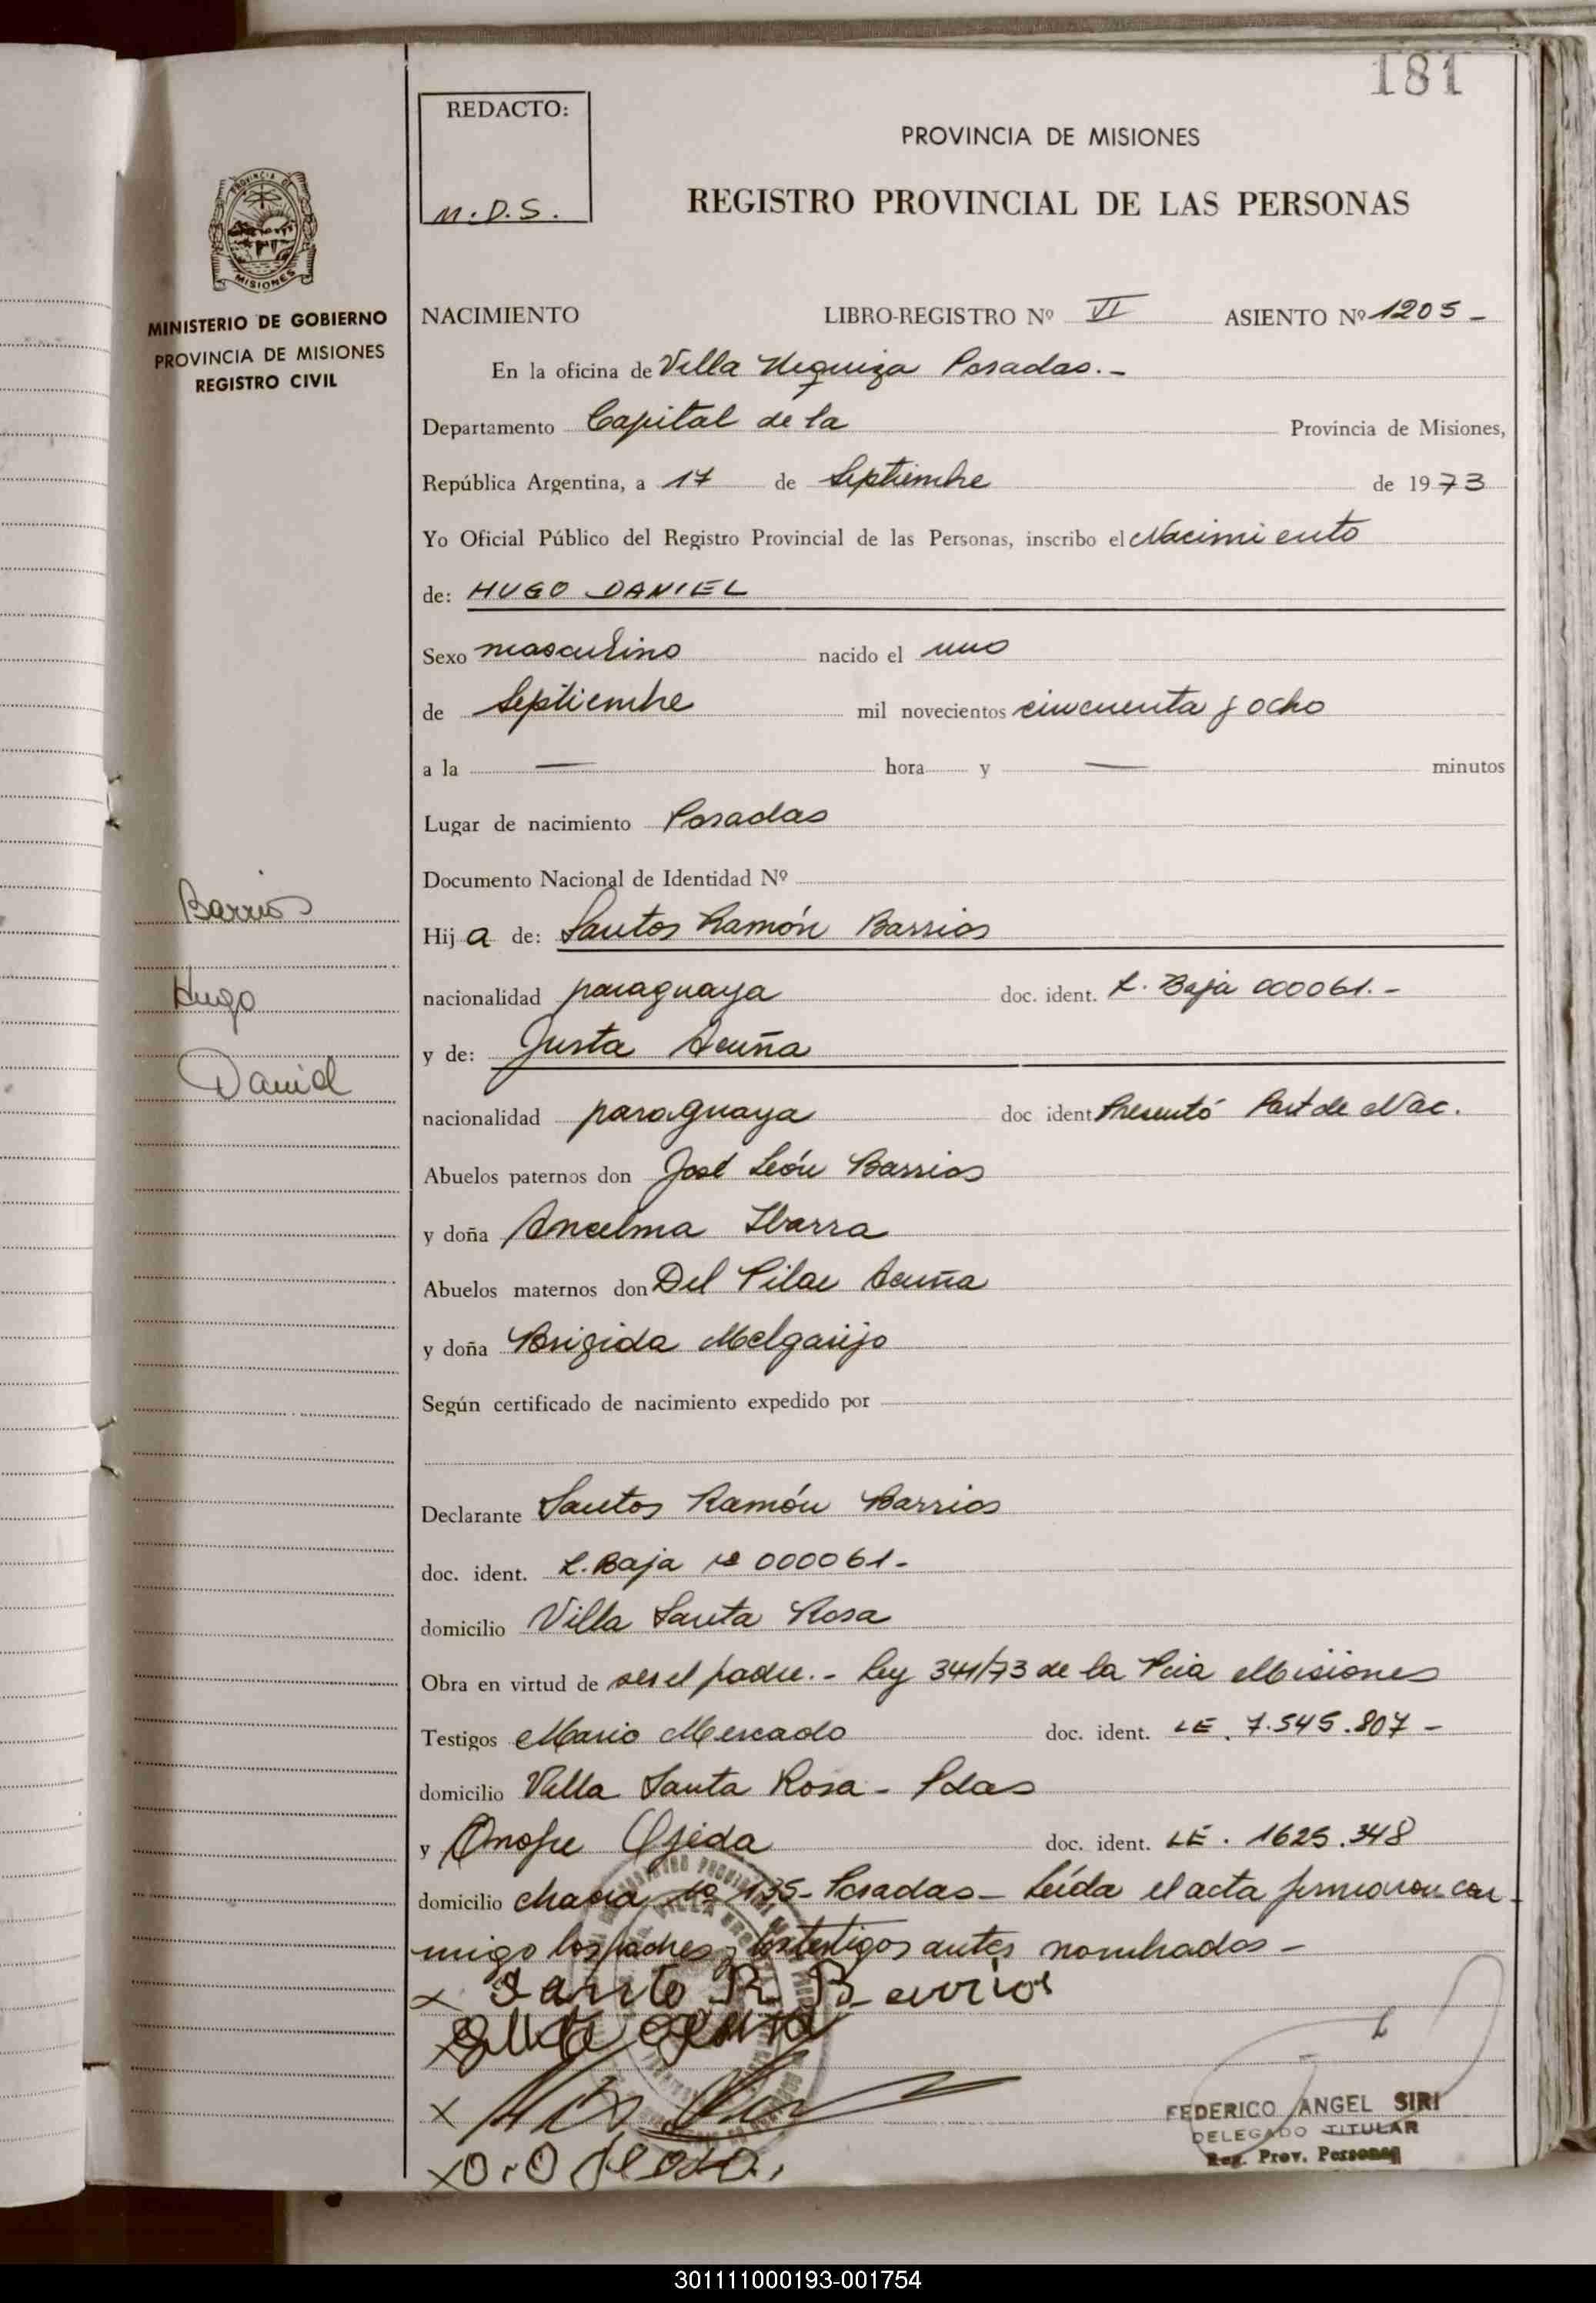 181
REDACTO:
M.D.S.
PROVINCIA DE MISIONES
REGISTRO PROVINCIAL DE LAS PERSONAS
PROVINCIA DE
MISIONES
MINISTERIO DE GOBIERNO
PROVINCIA DE MISIONES
REGISTRO CIVIL
NACIMIENTO LIBRO-REGISTRO Nº VI ASIENTO Nº 1205 -
En la oficina de Villa Urquiza Posadas. -
Departamento Capital de la Provincia de Misiones,
República Argentina, a 17 de Septiembre de 1973
Yo Oficial Público del Registro Provincial de las Personas, inscribo el Nacimiento
de: HUGO DANIEL
Sexo masculino nacido el uno
de Septiembre mil novecientos cincuenta y ocho
a la — hora y — minutos
Lugar de nacimiento Posadas
Documento Nacional de Identidad Nº
Barrios
Hij a de: Santos Ramón Barrios
Hugo
nacionalidad paraguaya doc. ident. L. Baja 000061. -
y de: Justa Acuña
Daniel
nacionalidad paraguaya doc ident Presentó Part de Nac.
Abuelos paternos don José León Barrios
y doña Ancelma Ibarra
Abuelos maternos don Del Pilar Acuña
y doña Brigida Melgarejo
Según certificado de nacimiento expedido por
Declarante Santos Ramón Barrios
doc. ident. L. Baja nº 000061 -
domicilio Villa Santa Rosa
Obra en virtud de ser el padre. - Ley 341/73 de la Pcia Misiones
Testigos Mario Mercado doc. ident. LE. 7.545.807 -
domicilio Villa Santa Rosa - Pdas
y Onofre Ojeda doc. ident. LE. 1625.348
domicilio chacra nº 135 - Posadas - Leída el acta firmaron con-
migo los padres y los testigos antes nombrados -
x Santo R. Barrios
x
x
x O. Ojeda.
FEDERICO ANGEL SIRI
DELEGADO TITULAR
Reg. Prov. Personas
301111000193-001754